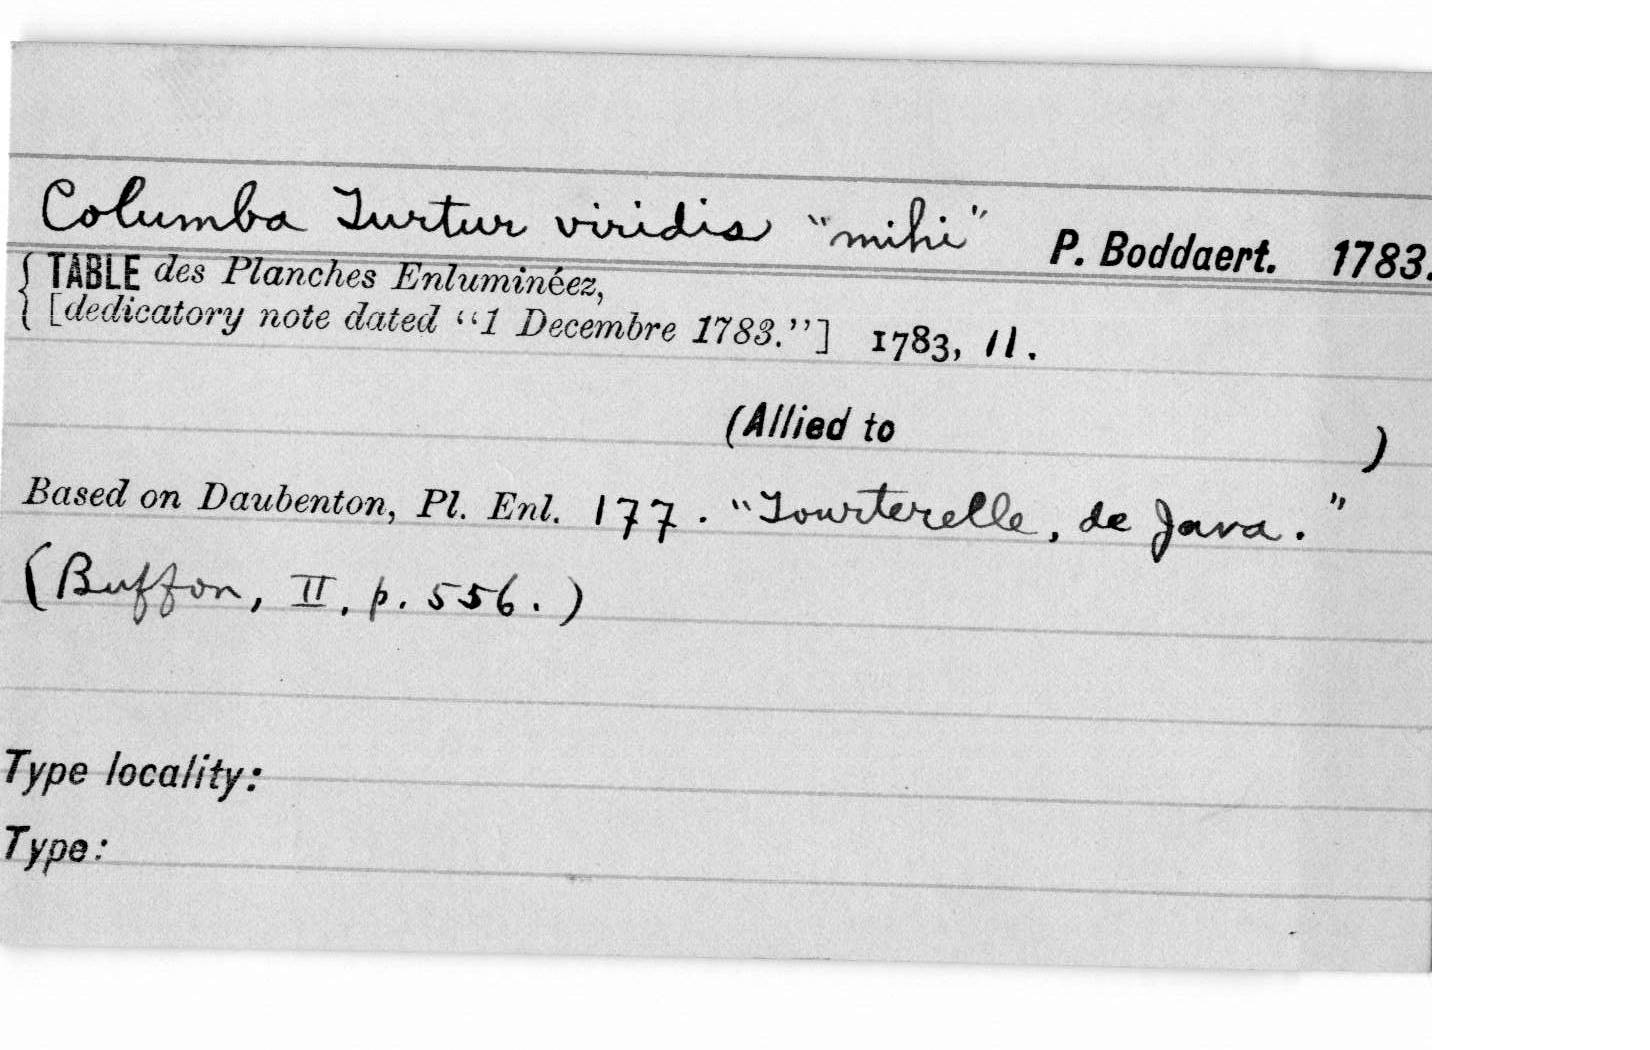 Columba Turtur viridis "mihi" P. Boddaert. 1783.
{ TABLE des Planches Enluminéez,
[dedicatory note dated “1 Decembre 1783.”] 1783, 11.
(Allied to )
Based on Daubenton, Pl. Enl. 177. "Tourterelle, de Java."
(Buffon, II, p. 556.)
Type locality:
Type: